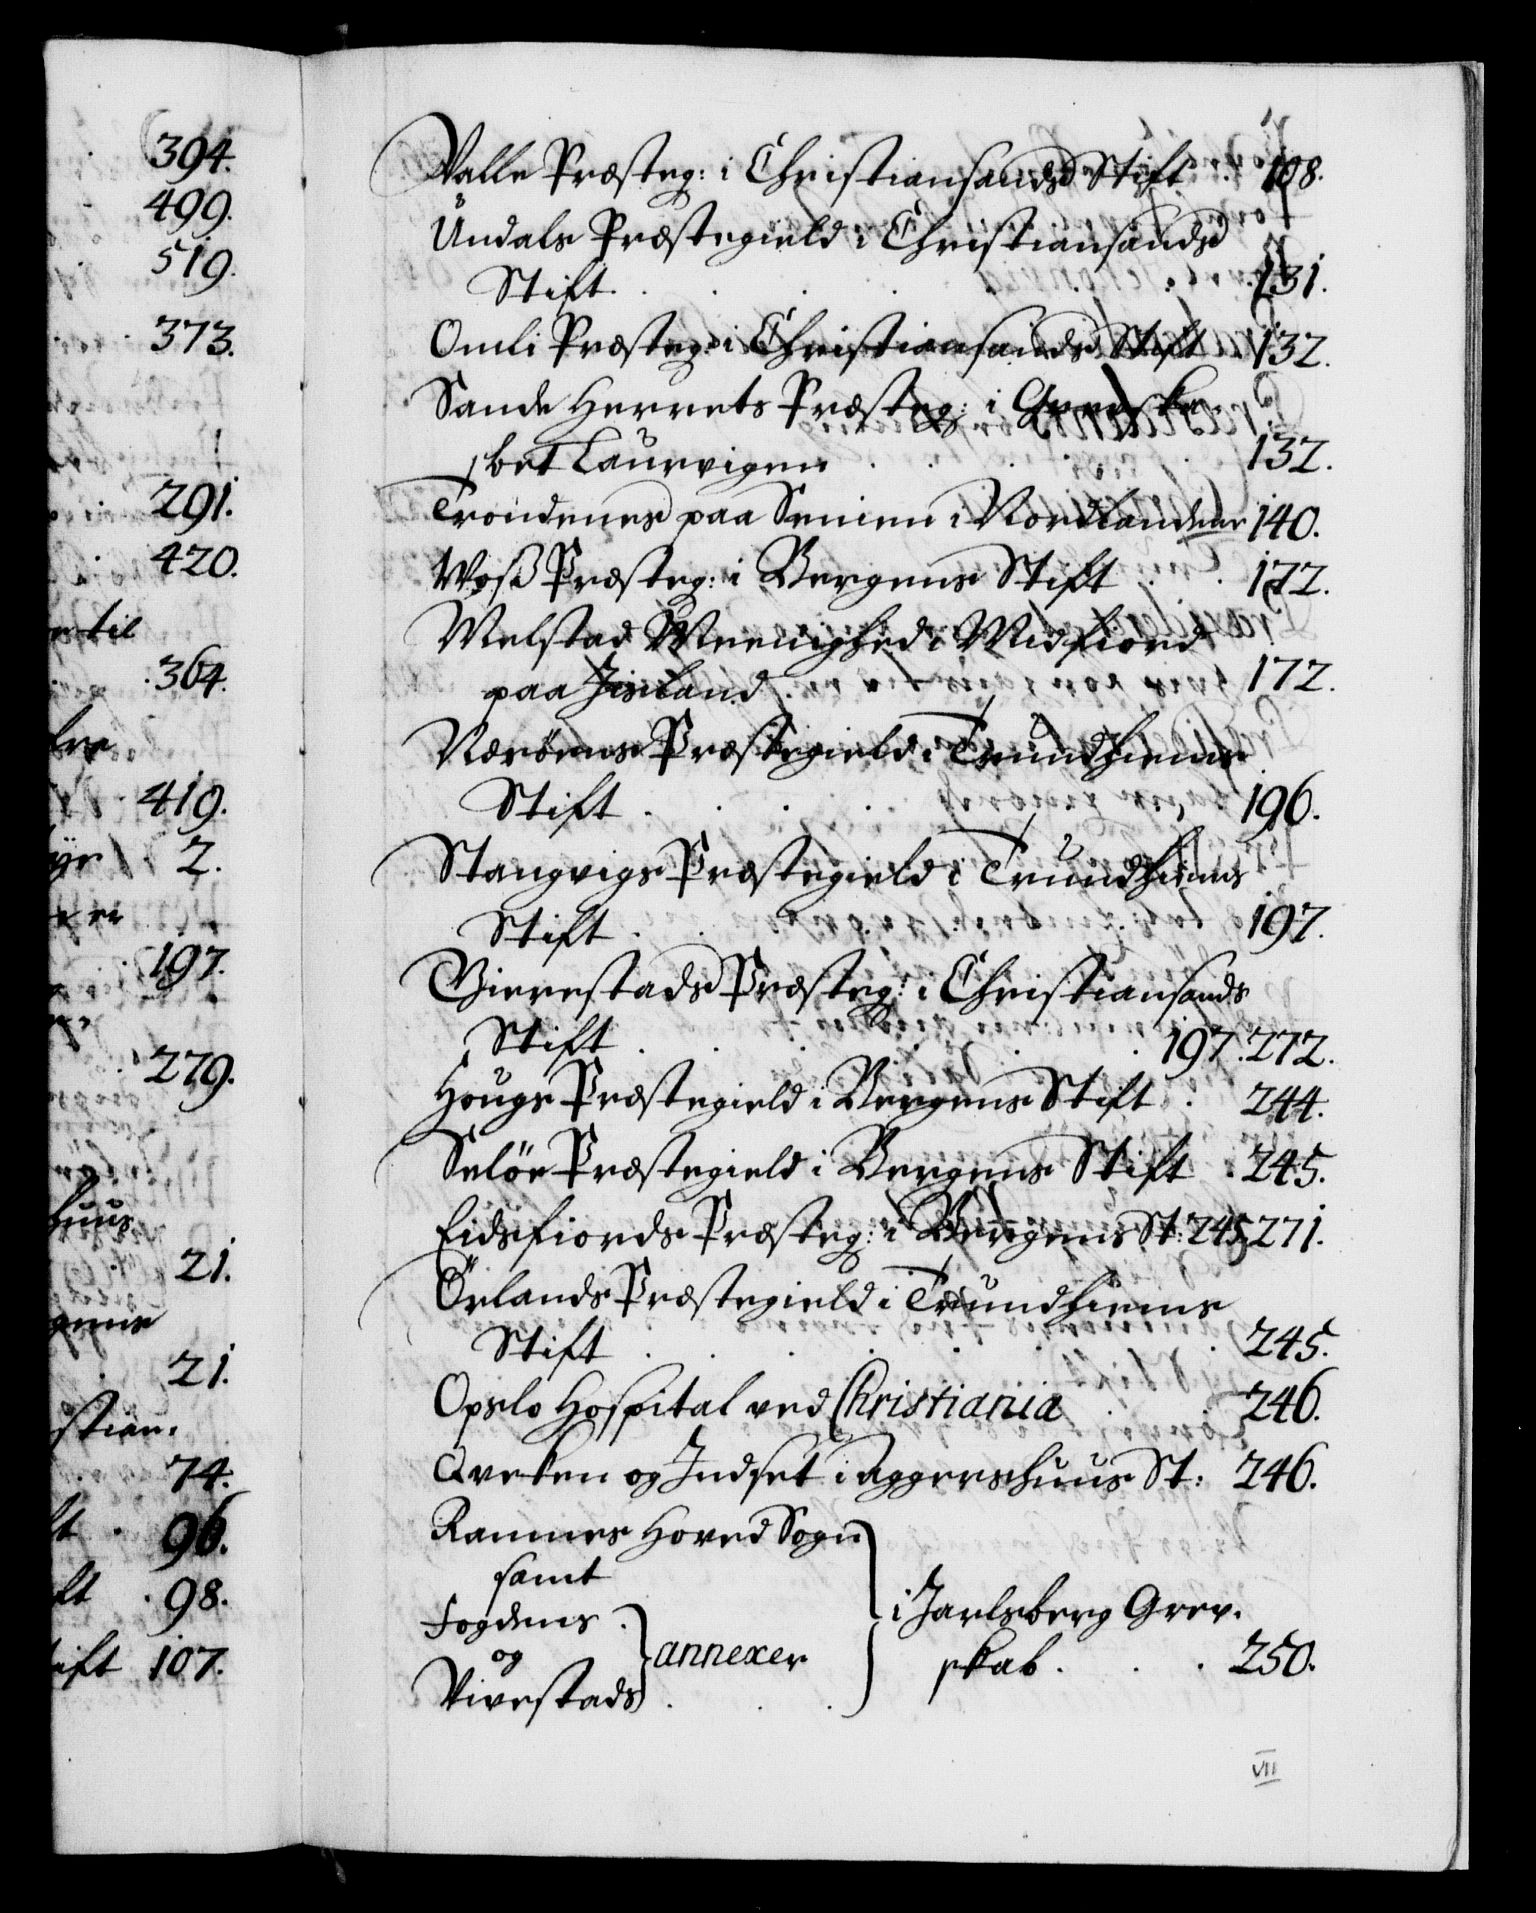 394.
499.
519.
373.
291.
420.
til
364.
419.
2.
er
197.
279.
huus
21.
gens
21.
stian:
74.
96.
98.
ift 107.
Valle Præsteg: i Christiansands Stift . 108.
Undals Præstegield i Christiansands
Stift . . . . . 131.
Omli Præsteg: i Christiansands Stift 132.
Sande Herrets Præsteg: i Grevska-
bet Laurvigen . . . . 132.
Trondenes paa Senien i Nordlandene 140.
Woss Præsteg: i Bergens Stift . . 172.
Melstad Meenighed i Midfiord
paa Jisland . 172.
Nærøens Præstegield i Trundhiems
Stift . . . . 196.
Stangvigs Præstegield i Trundhiems
Stift . . . . 197.
Gierestads Præsteg: i Christiansands
Stift . . . . 197. 272.
Hougs Præstegield i Bergens Stift . 244.
Seløe Præstegield i Bergens Stift . 245.
Eidsfiords Præsteg: i Bergens St: 245, 271.
Örlands Præstegield i Trundhiems
Stift . . . . . 245.
Opslo Hospital ved Christiania . . 246.
Qveken og Indset i Aggershuus St: 246.
Ramnes Hoved Sogn
samt
Fogdens .
og
Vivestads
annexer
i Jarlsberg Grev-
skab . . . 250.
VII